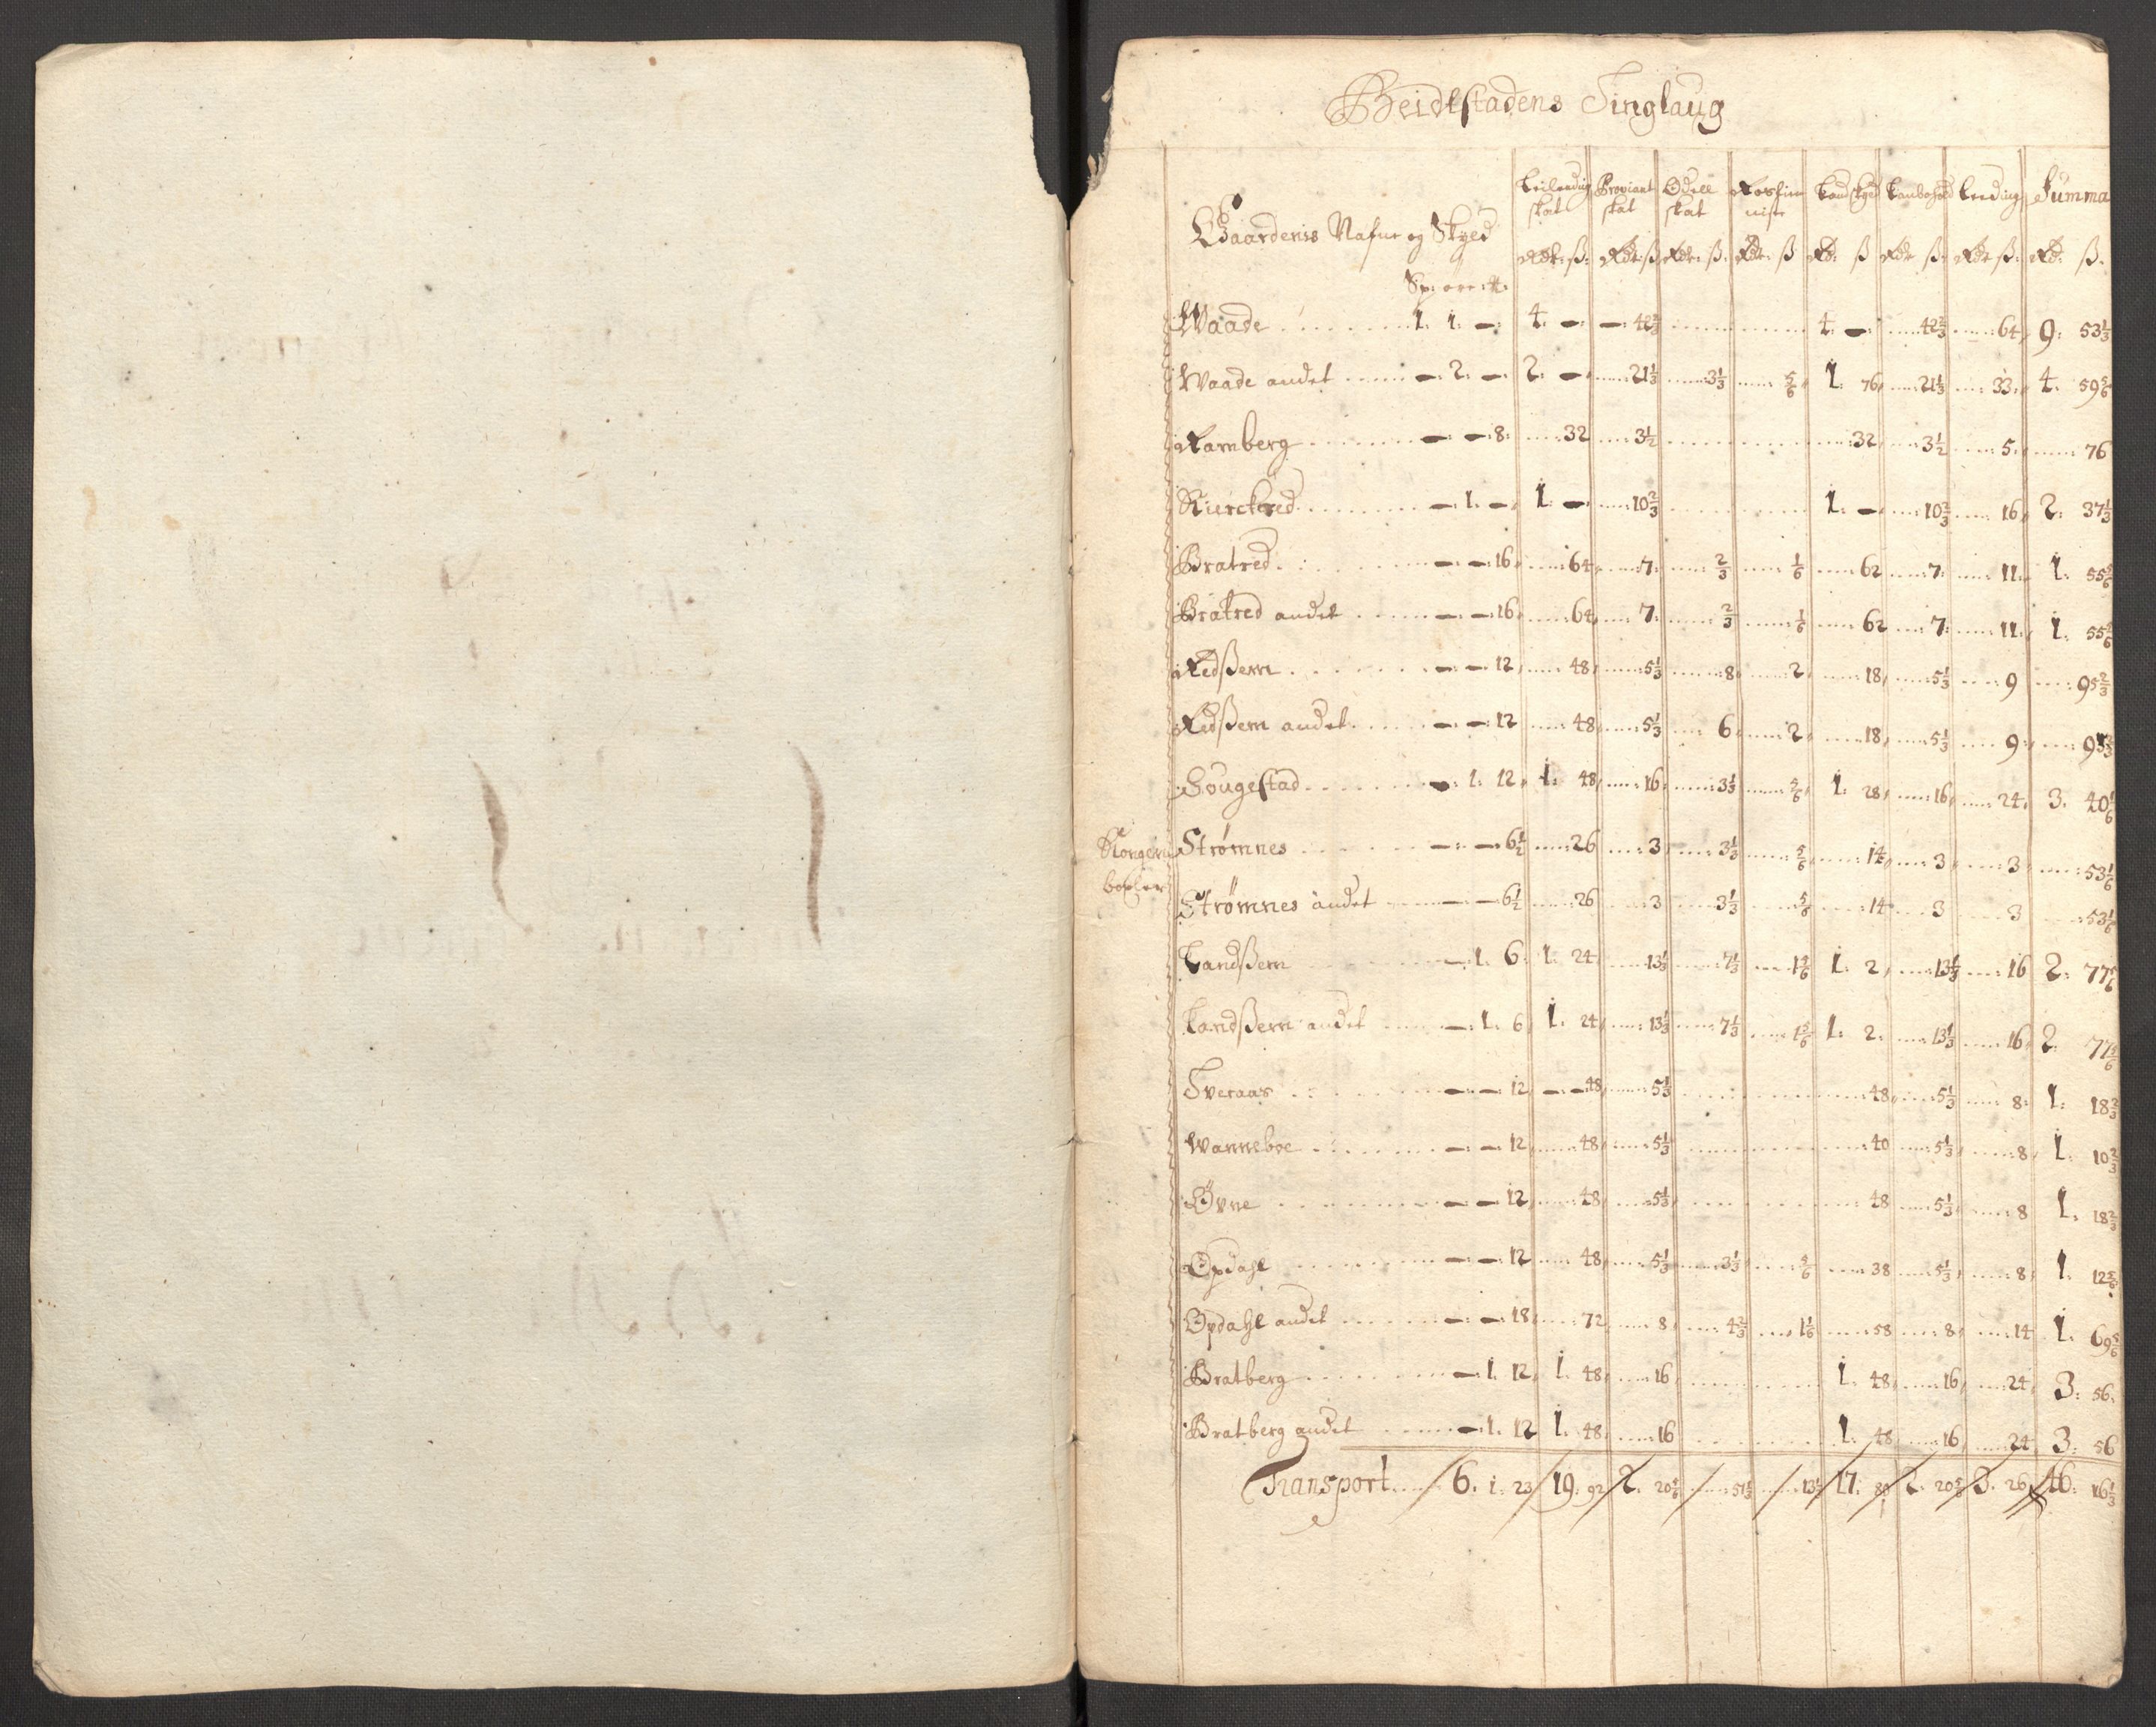 Beidtstadens Tinglaug
Gaardenis Nafne og Skyld Leilending skat Proviant skat Odell skat Landskyld Landbohold Leeding Summa
Sp: ore: #: Rdr: ß: Rdr: ß Rdr: ß: Rdr: ß Rd: ß Rdr ß: Rdr ß: Rd: ß.
Waade 1: 1: – 4: – – 42 2/3 4: – 42 2/3 64 9: 53 1/3
Waade andet – 2: – 2: – 21 1/3 3 1/3 5/6 1: 76 21 1/3 33 4: 59 5/6
Ramberg – – 8: 32 3 1/2 32 3 1/2 5 76
Kierckered – 1: – 1: – 10 2/3 1: – 10 2/3 16 2: 37 1/3
Bratred – – 16 64 7: 2/3 1/6 62 7: 11 1: 55 5/6
Bratred andet – – 16 64 7: 2/3 1/6 62 7: 11 1: 55 5/6
Redßem – – 12 48 5 1/3 8 2 18 5 1/3 9 95 2/3
Redßem andet – – 12 48 5 1/3 6 2 18 5 1/3 9
Hougestad – 1: 12 1: 48 16 3 1/3 5/6 1: 28 16 24 3: 40 1/6
Kongens Strømnes – – 6 1/2 26 3 3 1/3 5/6 14 3 3 53 1/6
boxler Strømnes andet – – 6 1/2 26 3 3 1/3 5/6 14 3 3 53 1/6
Landßem – 1: 6 1: 24 13 1/3 7 1/3 1 5/6 1: 2 13 1/3 16 2: 77 5/6
Landßem andet – 1: 6 1: 24 13 1/3 7 1/3 1 5/6 1: 2: 13 1/3 16 2: 77 5/6
Tveraas – – 12 – 48 5 1/3 48 5 1/3 8: 1: 18 2/3
Wanneboe – – 12 48 5 1/3 40 5 1/3 8 1: 10 2/3
Øvne – – 12 48 5 1/3 48 5 1/3 8 1: 18 2/3
Opdahl – – 12 48 5 1/3 3 1/3 5/6 38 5 1/3 8 1: 12 5/6
Opdahl andet – – 18 72 8 4 2/3 1 1/6 58 8 14 1: 69 5/6
Bratberg – 1: 12 1: 48 16 1: 48 16 24 3: 56
Bratberg andet – 1: 12 1: 48 16 1: 48 16 24 3: 56
Transport 6: 1: 23 19: 92 2: 20 5/6 51 1/3 13 1/2 17: 80 2: 20 5/6 3: 26 46: 16 1/3